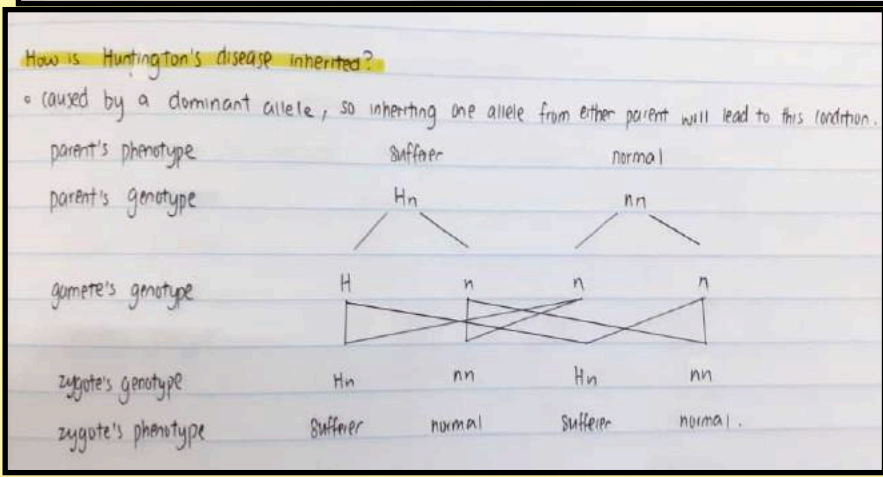 How is Huntington's disease inherited?
• caused by a dominant allele, so inheriting one allele from either parent will lead to this condition.
parent's phenotype sufferer normal
parent's genotype Hn nn
gamete's genotype H n n n
zygote's genotype Hn nn Hn nn
zygote's phenotype sufferer normal sufferer normal.